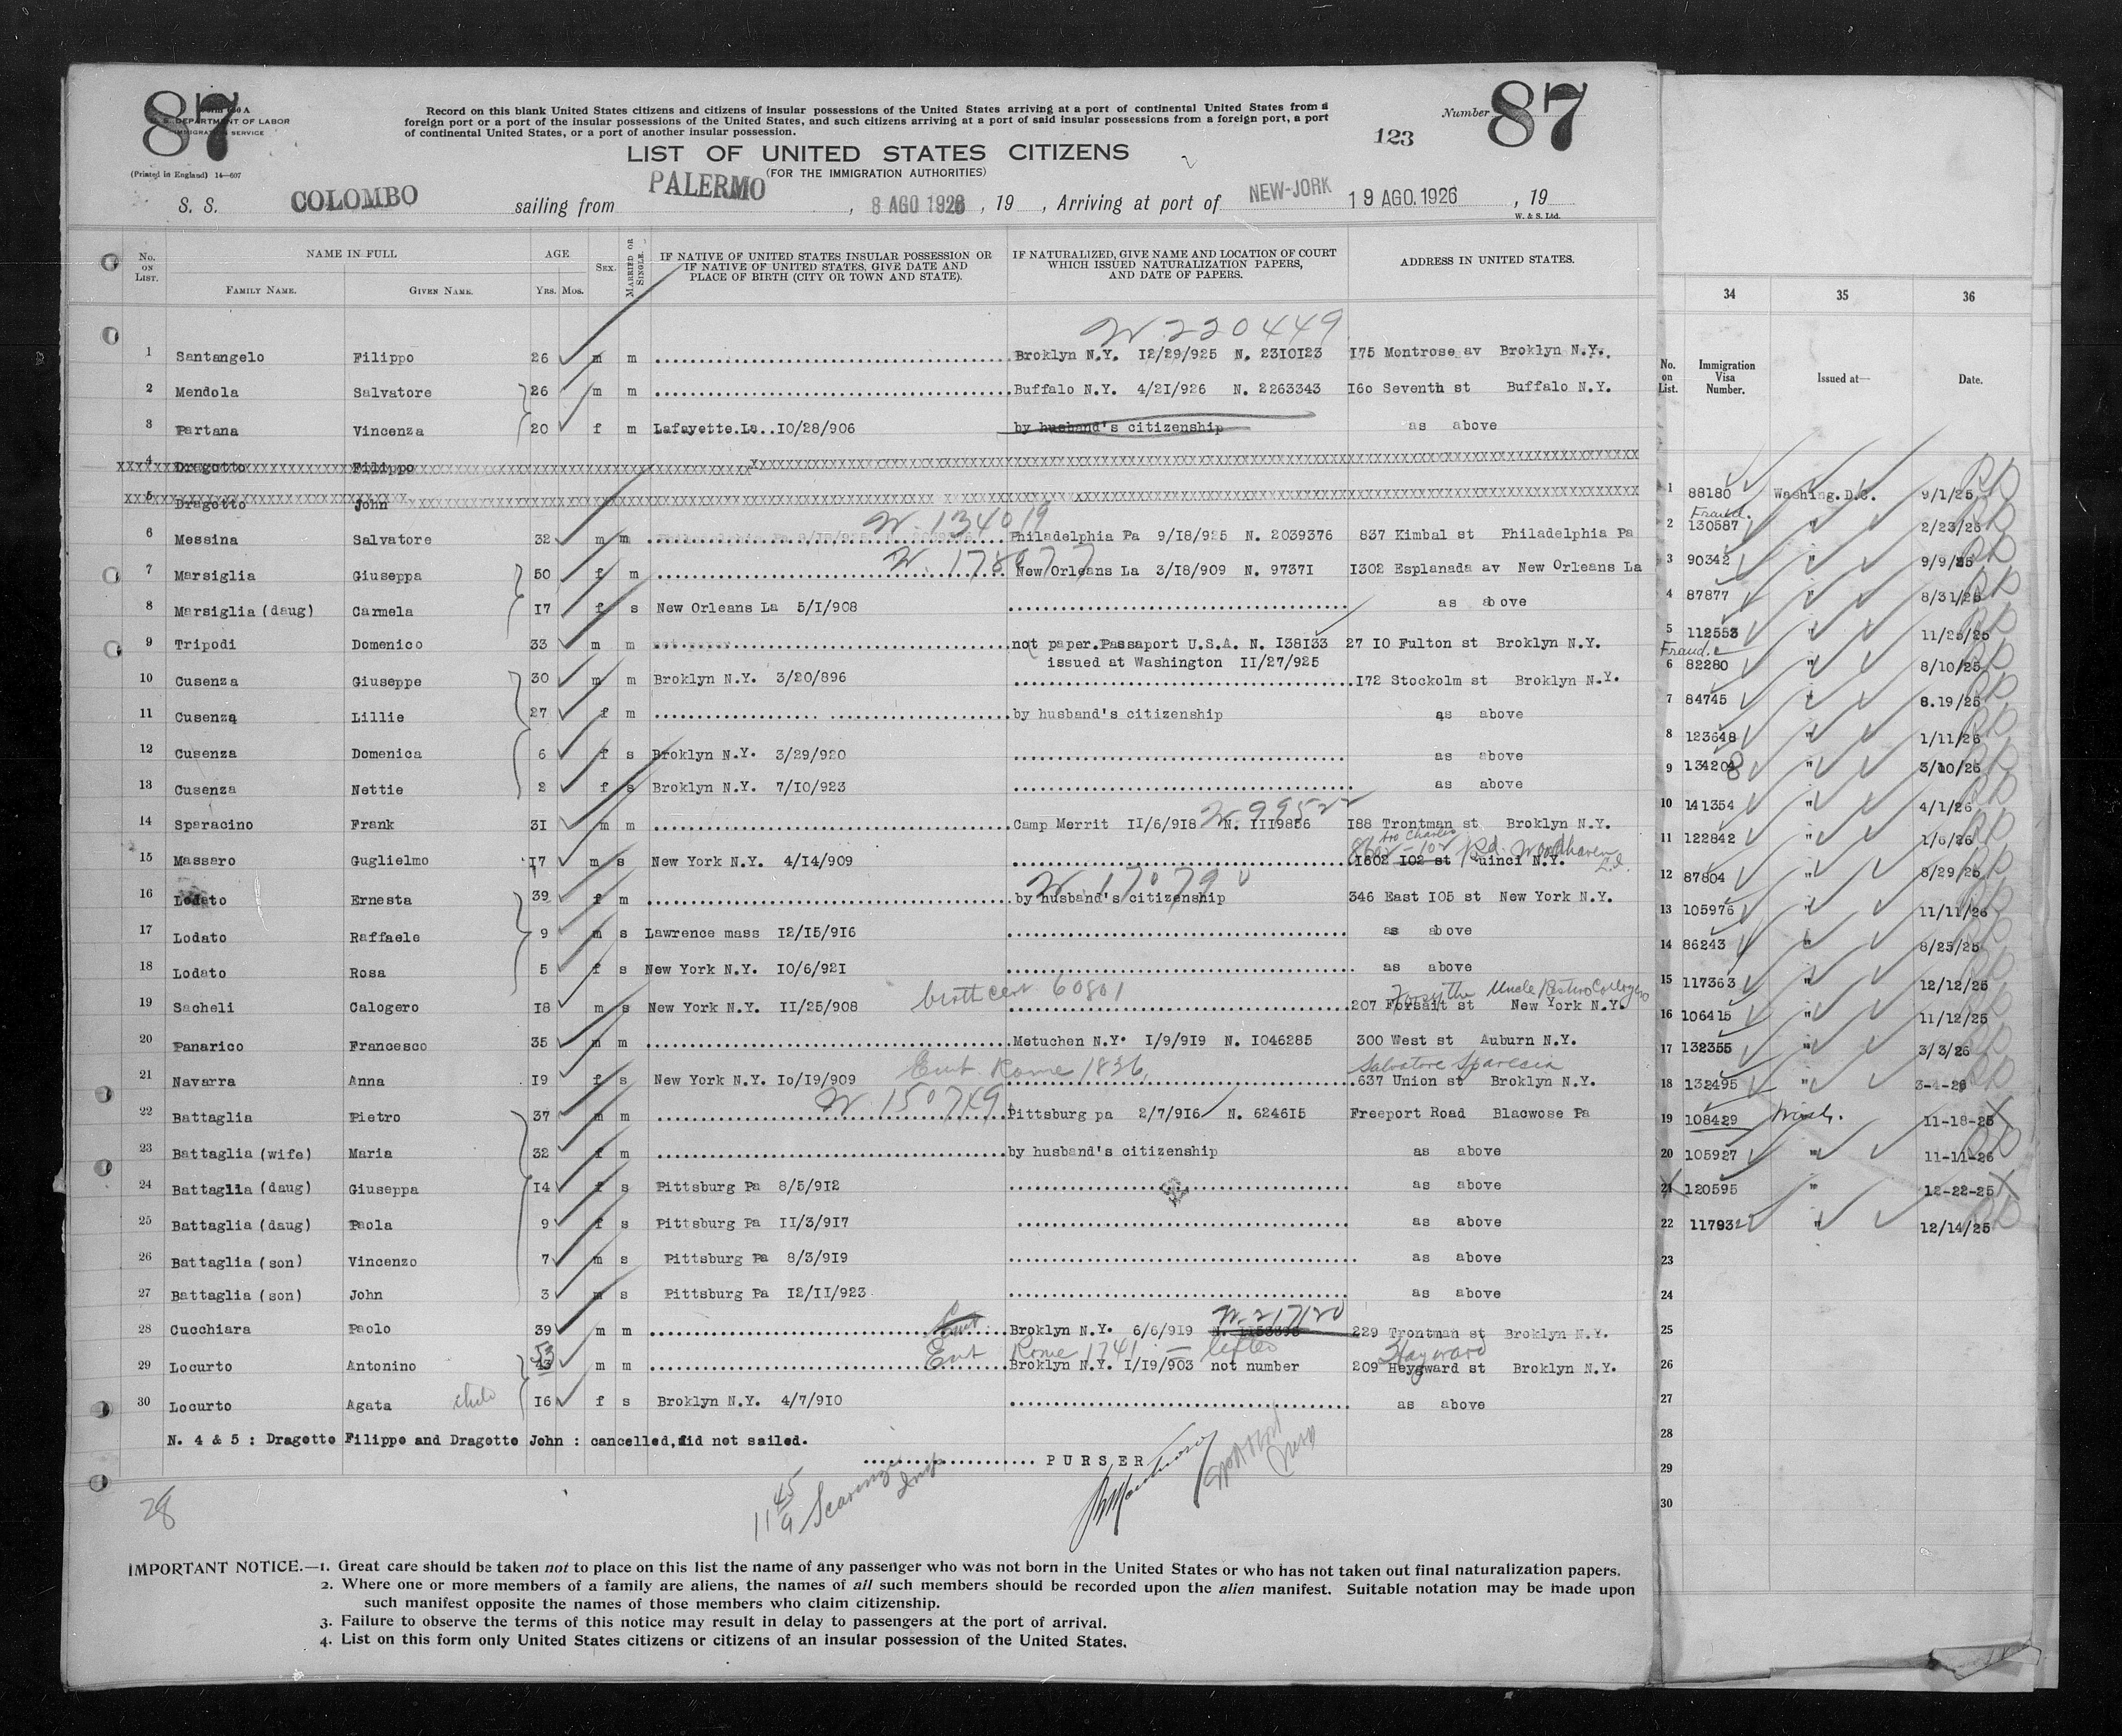 87
Form 630 A
U. S. DEPARTMENT OF LABOR
IMMIGRATION SERVICE
(Printed in England) 14—607
Record on this blank United States citizens and citizens of insular possessions of the United States arriving at a port of continental United States from a
foreign port or a port of the insular possessions of the United States, and such citizens arriving at a port of said insular possessions from a foreign port, a port
of continental United States, or a port of another insular possession.
Number 87
123
LIST OF UNITED STATES CITIZENS
(FOR THE IMMIGRATION AUTHORITIES)
S. S. COLOMBO sailing from PALERMO, 8 AGO 1926, 19 , Arriving at port of NEW-JORK 19 AGO. 1926, 19
W. & S. Ltd.
No. on List. NAME IN FULL Family Name. Given Name. AGE Yrs. Mos. Sex. Married or Single. IF NATIVE OF UNITED STATES INSULAR POSSESSION OR IF NATIVE OF UNITED STATES, GIVE DATE AND PLACE OF BIRTH (CITY OR TOWN AND STATE). IF NATURALIZED, GIVE NAME AND LOCATION OF COURT WHICH ISSUED NATURALIZATION PAPERS, AND DATE OF PAPERS. ADDRESS IN UNITED STATES.
W. 220449
1 Santangelo Filippo 26 m m Broklyn N.Y. I2/29/925 N. 23I0I23 I75 Montrose av Broklyn N.Y.
2 Mendola Salvatore 26 m m Buffalo N.Y. 4/2I/926 N. 2263343 I6o Seventh st Buffalo N.Y.
3 Partana Vincenza 20 f m Lafayette.La..I0/28/906 by husband's citizenship as above
4 Dragotto Filippo
5 Dragotto John
W. 134019
6 Messina Salvatore 32 m m Philadelphia Pa 9/I8/925 N. 2039376 837 Kimbal st Philadelphia Pa
W. 178677
7 Marsiglia Giuseppa 50 f m New Orleans La 3/I8/909 N. 9737I I302 Esplanada av New Orleans La
8 Marsiglia (daug) Carmela I7 f s New Orleans La 5/I/908 as above
9 Tripodi Domenico 33 m m not paper.Passaport U.S.A. N. I38I33 27 I0 Fulton st Broklyn N.Y.
issued at Washington II/27/925
10 Cusenza Giuseppe 30 m m Broklyn N.Y. 3/20/896 I72 Stockolm st Broklyn N.Y.
11 Cusenza Lillie 27 f m by husband's citizenship as above
12 Cusenza Domenica 6 f s Broklyn N.Y. 3/29/920 as above
13 Cusenza Nettie 2 f s Broklyn N.Y. 7/I0/923 as above
W. 99522
14 Sparacino Frank 3I m m Camp Merrit II/6/9I8 N. III9856 I88 Trontman st Broklyn N.Y.
Rd. Woodhaven L.I.
15 Massaro Guglielmo I7 m s New York N.Y. 4/I4/909 I602 I02 st Quinci N.Y.
W 170790
16 Lodato Ernesta 39 f m by husband's citizenship 346 East I05 st New York N.Y.
17 Lodato Raffaele 9 m s Lawrence mass I2/I5/9I6 as above
18 Lodato Rosa 5 f s New York N.Y. I0/6/92I as above
birth cert 60801 Forsythe Uncle
19 Sacheli Calogero I8 m s New York N.Y. II/25/908 207 Forsait st New York N.Y.
20 Panarico Francesco 35 m m Metuchen N.Y. I/9/9I9 N. I046285 300 West st Auburn N.Y.
Cert Rome 1836 Salvatore Sparacia
21 Navarra Anna I9 f s New York N.Y. Io/I9/909 637 Union st Broklyn N.Y.
W. 150749
22 Battaglia Pietro 37 m m Pittsburg pa 2/7/9I6 N. 6246I5 Freeport Road Blacwose Pa
23 Battaglia (wife) Maria 32 f m by husband's citizenship as above
24 Battaglia (daug) Giuseppa I4 f s Pittsburg Pa 8/5/9I2 as above
25 Battaglia (daug) Paola 9 f s Pittsburg Pa II/3/9I7 as above
26 Battaglia (son) Vincenzo 7 m s Pittsburg Pa 8/3/9I9 as above
27 Battaglia (son) John 3 m s Pittsburg Pa I2/II/923 as above
W. 217120
28 Cucchiara Paolo 39 m m Broklyn N.Y. 6/6/9I9 N. II53393 229 Trontman st Broklyn N.Y.
Cert Rome 1741 — lifted Hayward
29 Locurto Antonino 53 43 m m Broklyn N.Y. I/I9/903 not number 209 Heygward st Broklyn N.Y.
30 Locurto Agata child I6 f s Broklyn N.Y. 4/7/9I0 as above
N. 4 & 5 : Dragotto Filippo and Dragotto John : cancelled, did not sailed.
PURSER
28
11 45 9
IMPORTANT NOTICE.—1. Great care should be taken not to place on this list the name of any passenger who was not born in the United States or who has not taken out final naturalization papers.
2. Where one or more members of a family are aliens, the names of all such members should be recorded upon the alien manifest. Suitable notation may be made upon
such manifest opposite the names of those members who claim citizenship.
3. Failure to observe the terms of this notice may result in delay to passengers at the port of arrival.
4. List on this form only United States citizens or citizens of an insular possession of the United States.
34 35 36
No. on List. Immigration Visa Number. Issued at— Date.
1 88180 Washing.D.C. 9/1/25
Fraud.
2 130587 " 2/23/26
3 90342 " 9/9/25
4 87877 " 8/31/25
5 112553 " 11/25/25
Fraud.
6 82280 " 8/10/25
7 84745 " 8.19/25
8 123648 " 1/11/26
9 134208 " 3/10/26
10 141354 " 4/1/26
11 122842 " 1/6/26
12 87804 " 8/29/25
13 105976 " 11/11/25
14 86243 " 8/25/25
15 117363 " 12/12/25
16 106415 " 11/12/25
17 132355 " 3/3/26
18 132495 " 3-4-26
19 108429 Wash. 11-18-25
20 105927 " 11-11-25
21 120595 " 12-22-25
22 117932 " 12/14/25
23
24
25
26
27
28
29
30